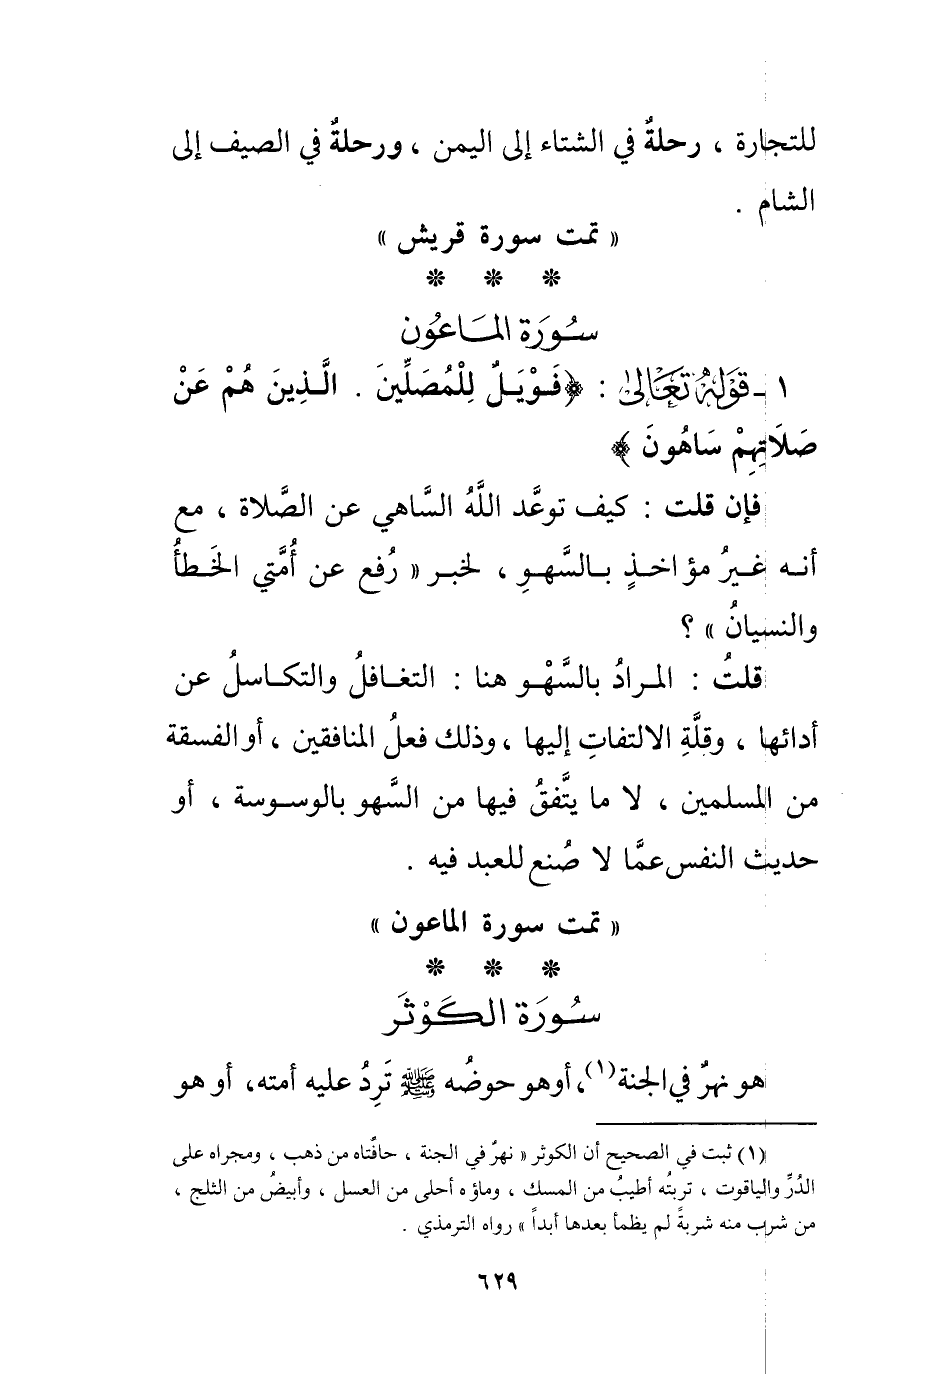 للتجارة ، رحلةٌ في الشتاء إلى اليمن ، ورحلةٌ في الصيف إلى
الشام .
« تمت سورة قريش »
* * *
سُورَة المَاعُون
١ ـ قَوْلُهُ تَعَالىٰ : ﴿فَوَيْلٌ لِلْمُصَلِّينَ . الَّذِينَ هُمْ عَنْ
صَلَاتِهِمْ سَاهُونَ﴾
فإن قلت : كيف توعَّد اللَّهُ السَّاهي عن الصَّلاة ، مع
أنه غيرُ مؤاخذٍ بالسَّهوِ ، لخبر « رُفع عن أُمَّتي الخَطأُ
والنسيانُ » ؟
قلتُ : المرادُ بالسَّهْوِ هنا : التغافلُ والتكاسلُ عن
أدائها ، وقلَّةِ الالتفاتِ إليها ، وذلك فعلُ المنافقين ، أو الفسقة
من المسلمين ، لا ما يتَّفقُ فيها من السَّهو بالوسوسة ، أو
حديث النفس عمَّا لا صُنع للعبد فيه .
« تمت سورة الماعون »
* * *
سُورَة الكَوْثَر
هو نهرٌ في الجنة(١)، أوهو حوضُه ﷺ تَرِدُ عليه أمته، أو هو
(١) ثبت في الصحيح أن الكوثر « نهرٌ في الجنة ، حافَّتاه من ذهب ، ومجراه على
الدُرِّ والياقوت ، تربتُه أطيبُ من المسك ، وماؤه أحلى من العسل ، وأبيضُ من الثلج ،
من شرب منه شربةً لم يظمأ بعدها أبداً » رواه الترمذي .
٦٢٩